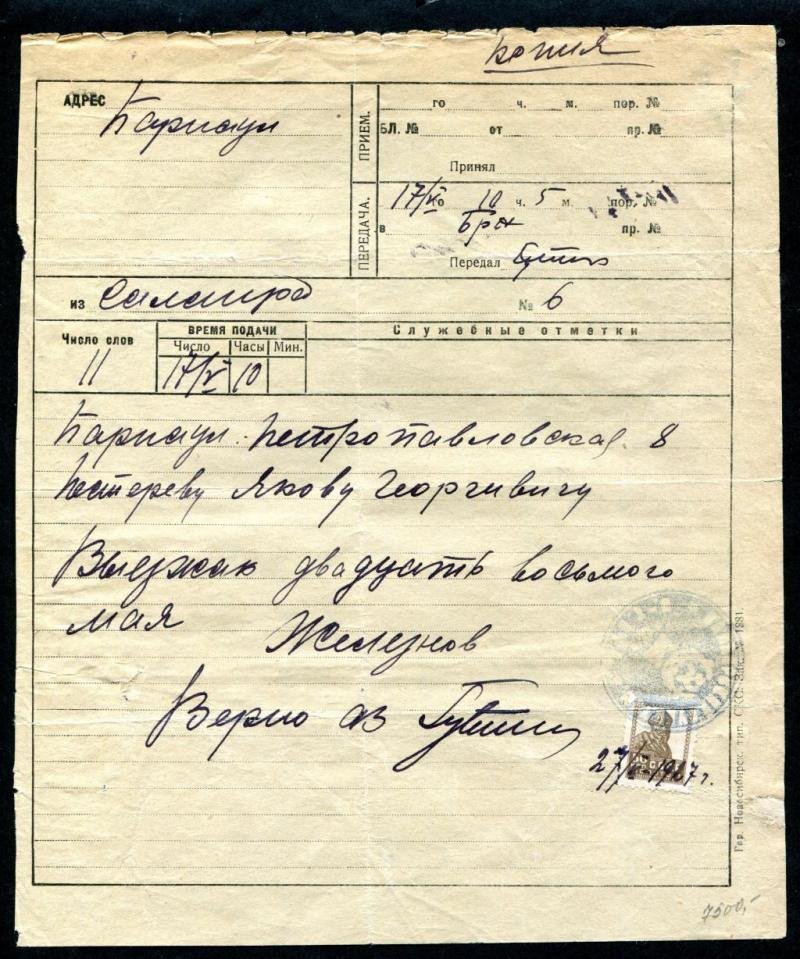 копия
АДРЕС Барнаул
ПРИЕМ.
го ч. м. пор. №
БЛ. № от пр. №
Принял
ПЕРЕДАЧА.
17/V го 10 ч. 5 м. пор. №
в Брн пр. №
Передал
из Салаира № 6
Число слов ВРЕМЯ ПОДАЧИ Служебные отметки
Число Часы Мин.
11 17/V 10
Барнаул. Петропавловская. 8
Пестереву Якову Георгиевичу
Выезжаю двадцать восьмого
мая Железнов
Верно
27/V 1927 г.
Гор. Новосибирск. тип. 1981.
7500,-